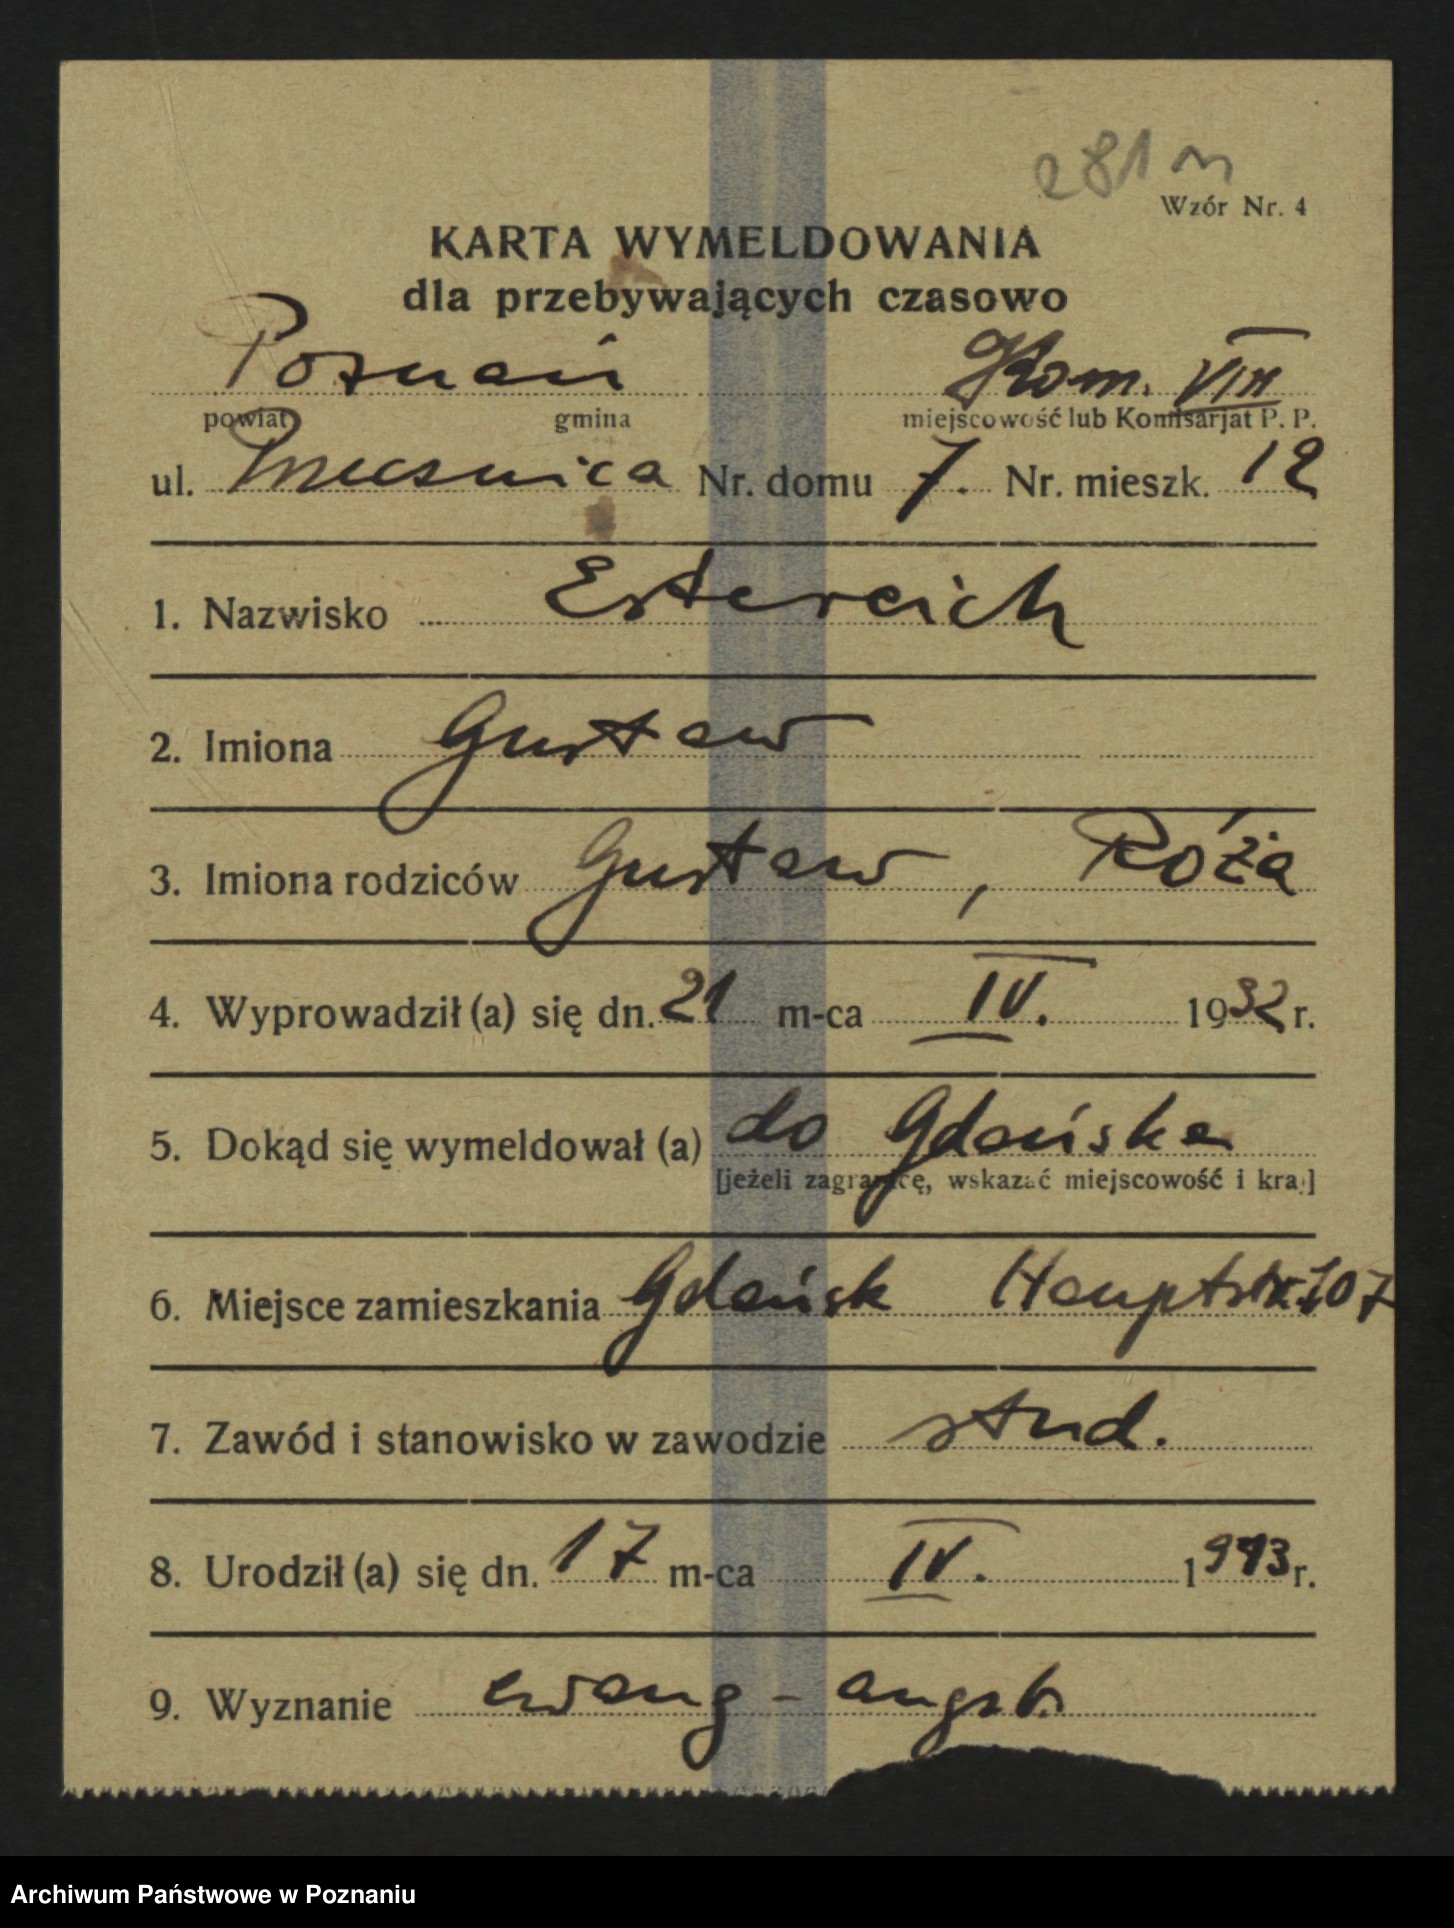 281 m
Wzór Nr. 4
KARTA WYMELDOWANIA
dla przebywających czasowo
Poznań Kom. VIII
powiat gmina miejscowość lub Komisarjat P. P.
ul. Nr. domu 7. Nr. mieszk. 12
1. Nazwisko Estereich
2. Imiona Gustaw
3. Imiona rodziców Gustaw, Róża
4. Wyprowadził (a) się dn. 21 m-ca IV. 1932 r.
5. Dokąd się wymeldował (a) do Gdańska
[jeżeli zagranicę, wskazać miejscowość i kraj]
6. Miejsce zamieszkania Gdańsk Hauptstr. 107
7. Zawód i stanowisko w zawodzie stud.
8. Urodził (a) się dn. 17 m-ca IV. 1913 r.
9. Wyznanie ewang - augsb.
Archiwum Państwowe w Poznaniu